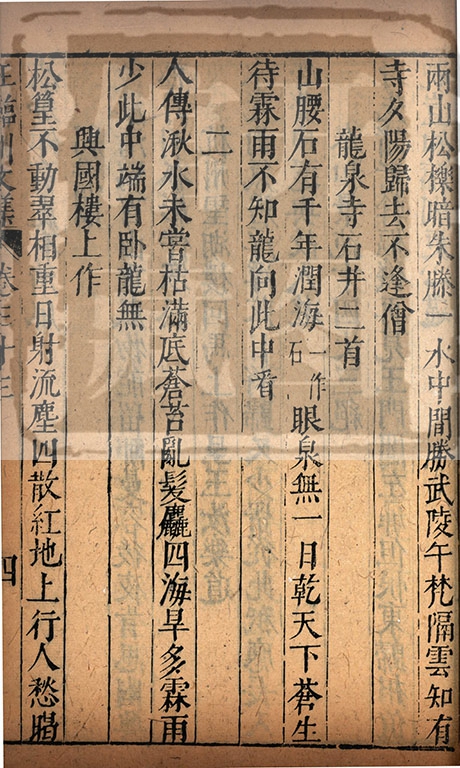 兩山松櫟暗朱藤一水中間勝武陵午梵隔雲知有
寺夕陽歸去不逢僧
龍泉寺石井二首
山腰石有千年潤海一作石眼泉無一日乾天下蒼生
待霖雨不知龍向此中看
二
人傳湫水未嘗枯滿底蒼苔亂髮麤四海旱多霖雨
少此中端有卧龍無
興國樓上作
松篁不動翠相重日射流塵四散紅地上行人愁暍
王臨川文集 卷三十三 四